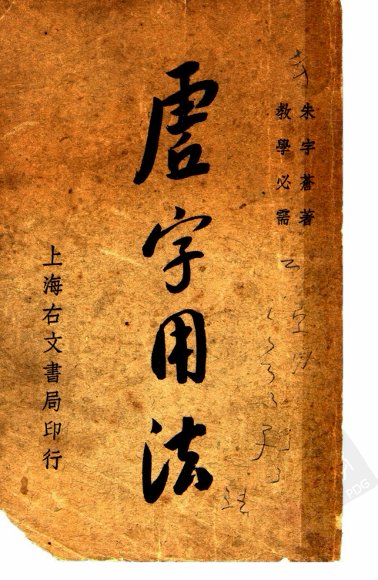 朱宇蒼著
教學必需
虛字用法
上海右文書局印行
PDG